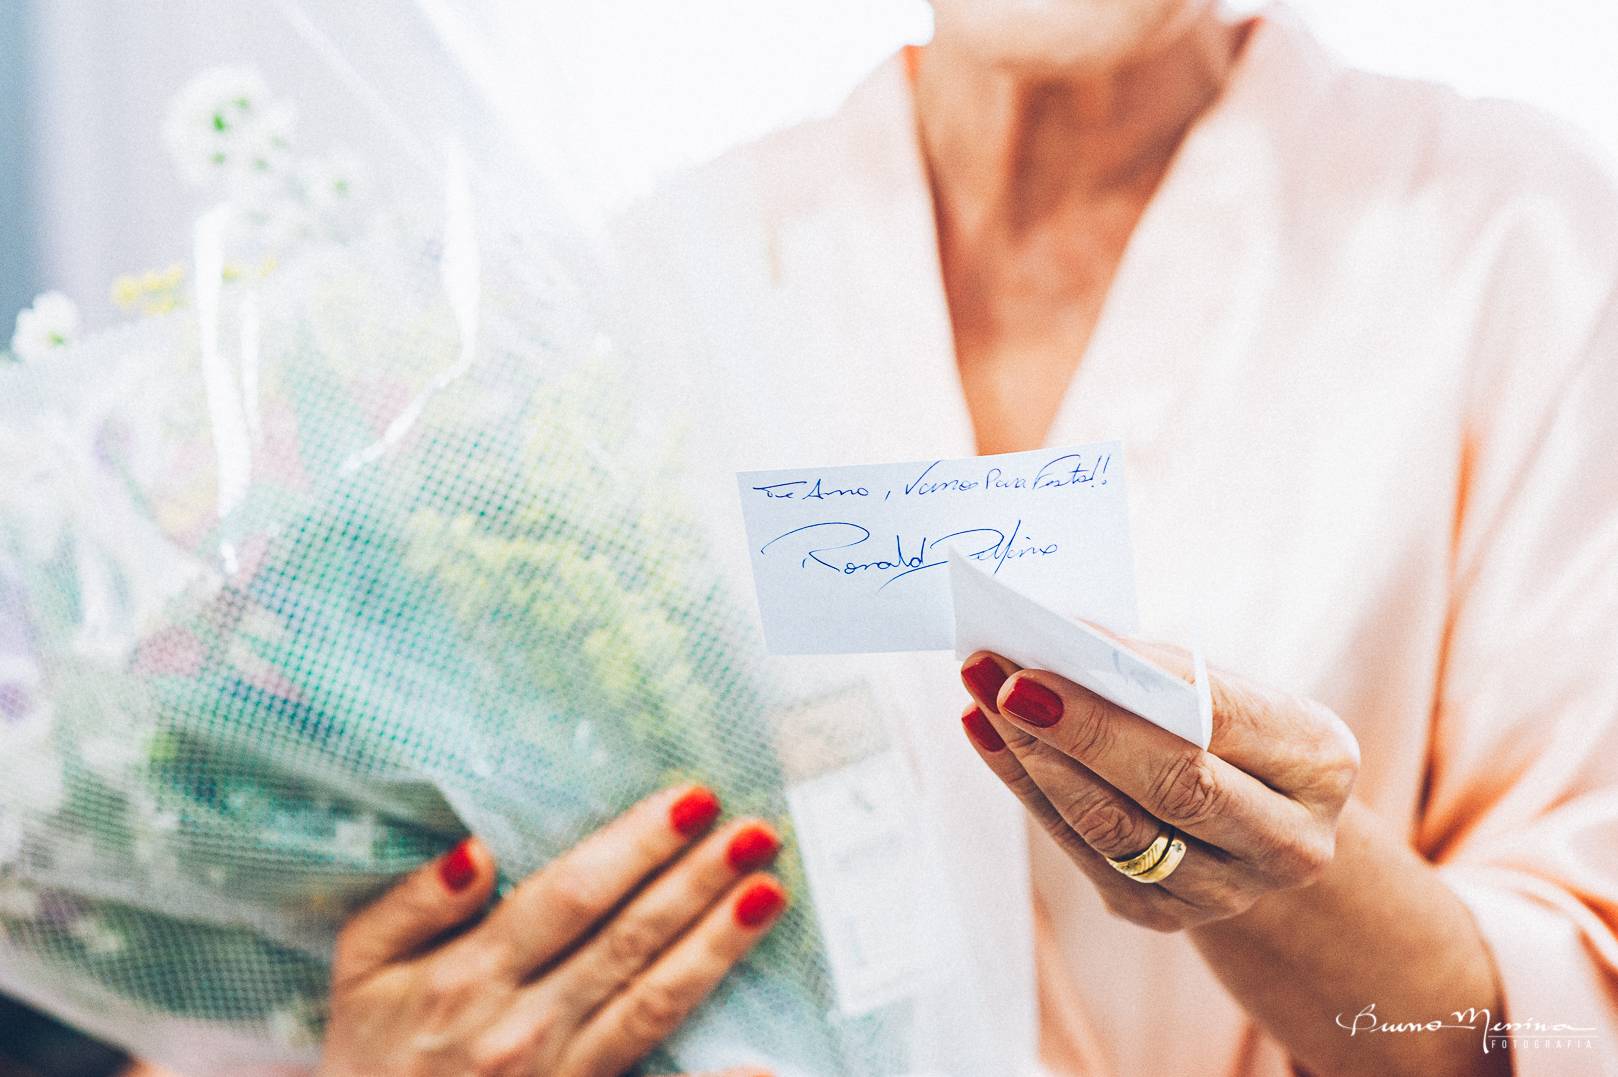 Te Amo, Vamos Para Festa!!
Ronald
Bruno Messina
FOTOGRAFIA